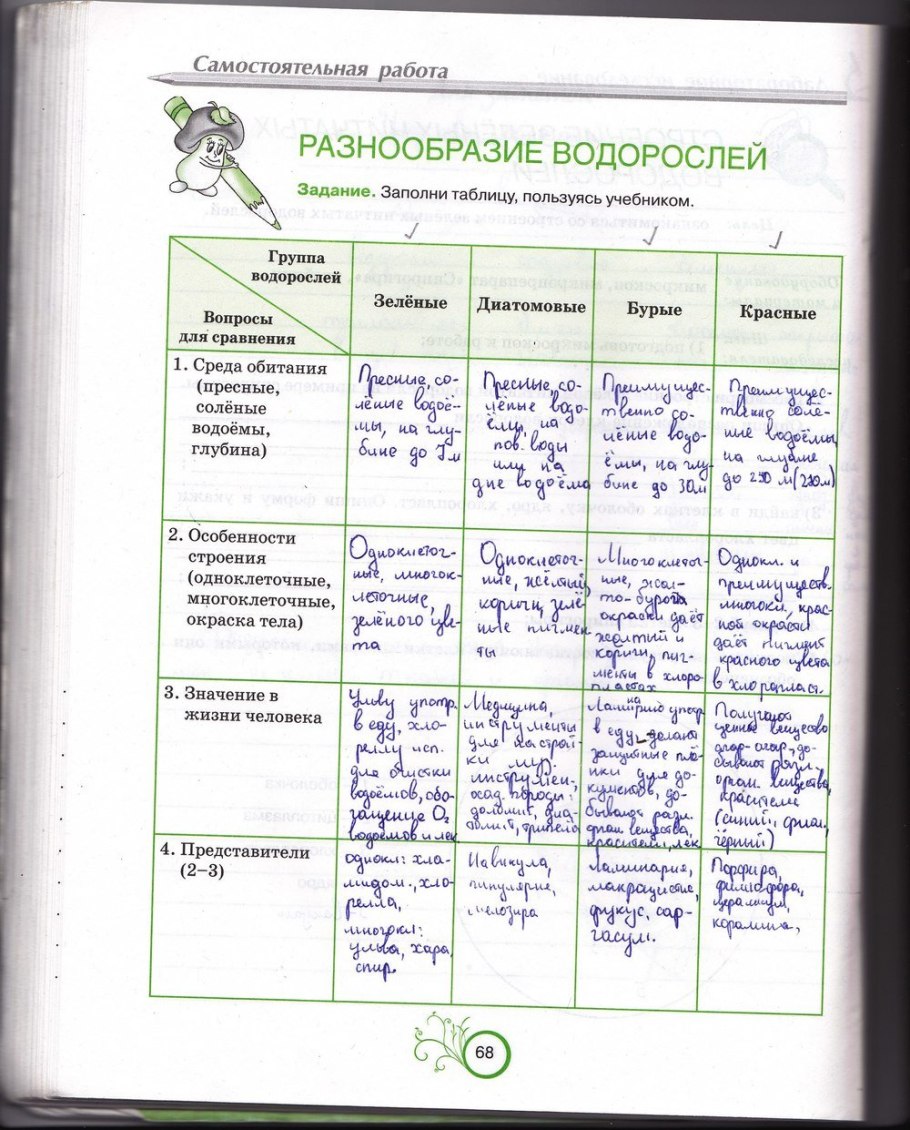 Самостоятельная работа
РАЗНООБРАЗИЕ ВОДОРОСЛЕЙ
Задание. Заполни таблицу, пользуясь учебником.
Группа
водорослей
Вопросы
для сравнения
Зелёные
Диатомовые
Бурые
Красные
1. Среда обитания
(пресные,
солёные
водоёмы,
глубина)
Пресные, со-
лёные водоё-
мы, на глу-
бине до 7м
Пресные, со-
лёные водо-
ёмы, на
пов. воды
или на
дне водоёма
Преимущес-
твенно со-
лёные водо-
ёмы, на глу-
бине до 30м
Преимущес-
твенно солё-
ные водоёмы
на глубине
до 250 м
2. Особенности
строения
(одноклеточные,
многоклеточные,
окраска тела)
Одноклеточ-
ные, многок-
леточные,
зелёного цве-
та
Одноклеточ-
ные, жёлтый,
коричн, зелё-
ные пигмен
ты
Многоклеточ-
ные,
окраски даёт
жёлтый и
коричн, пиг-
менты в хлоро
пластах
Однокл. и
преимуществ.
многокл, крас-
ной окраски
даёт пигмент
красного цвета
в хлоропласт.
3. Значение в
жизни человека
Ульву употр.
в еду, хло-
реллу исп.
для очистки
водоёмов, обо-
гащение O₂
водоёмов и лек
Медицина,
инструменты
для настрой-
ки муз.
инструмен,
осад. породы:
доломит, диа-
томит,
употр
в еду, делают
защитные плё-
нки для до-
кументов, до-
бывают разл.
орган вещества,
красители, лек
Получают
ценное вещество
агар-агар, до-
бывают разл.
орган. вещества,
красители
(синий,
чёрный)
4. Представители
(2–3)
однокл: хла-
мидом., хло-
релла,
многокл:
ульва, хара,
спир.
Навикула,
пинулярие,
мелозира
Ламинария,
макроцистис,
фукус, сар-
гасум.
Порфира,
филлофора,
кораллина,
68